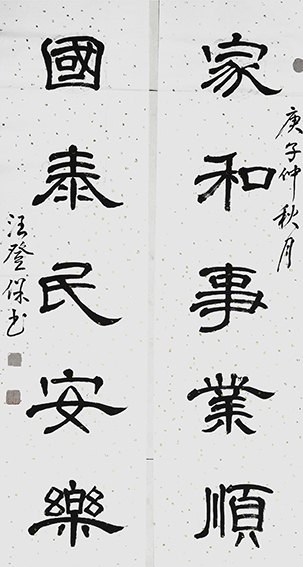 庚子仲秋月
家和事業順
國泰民安樂
汪登保书